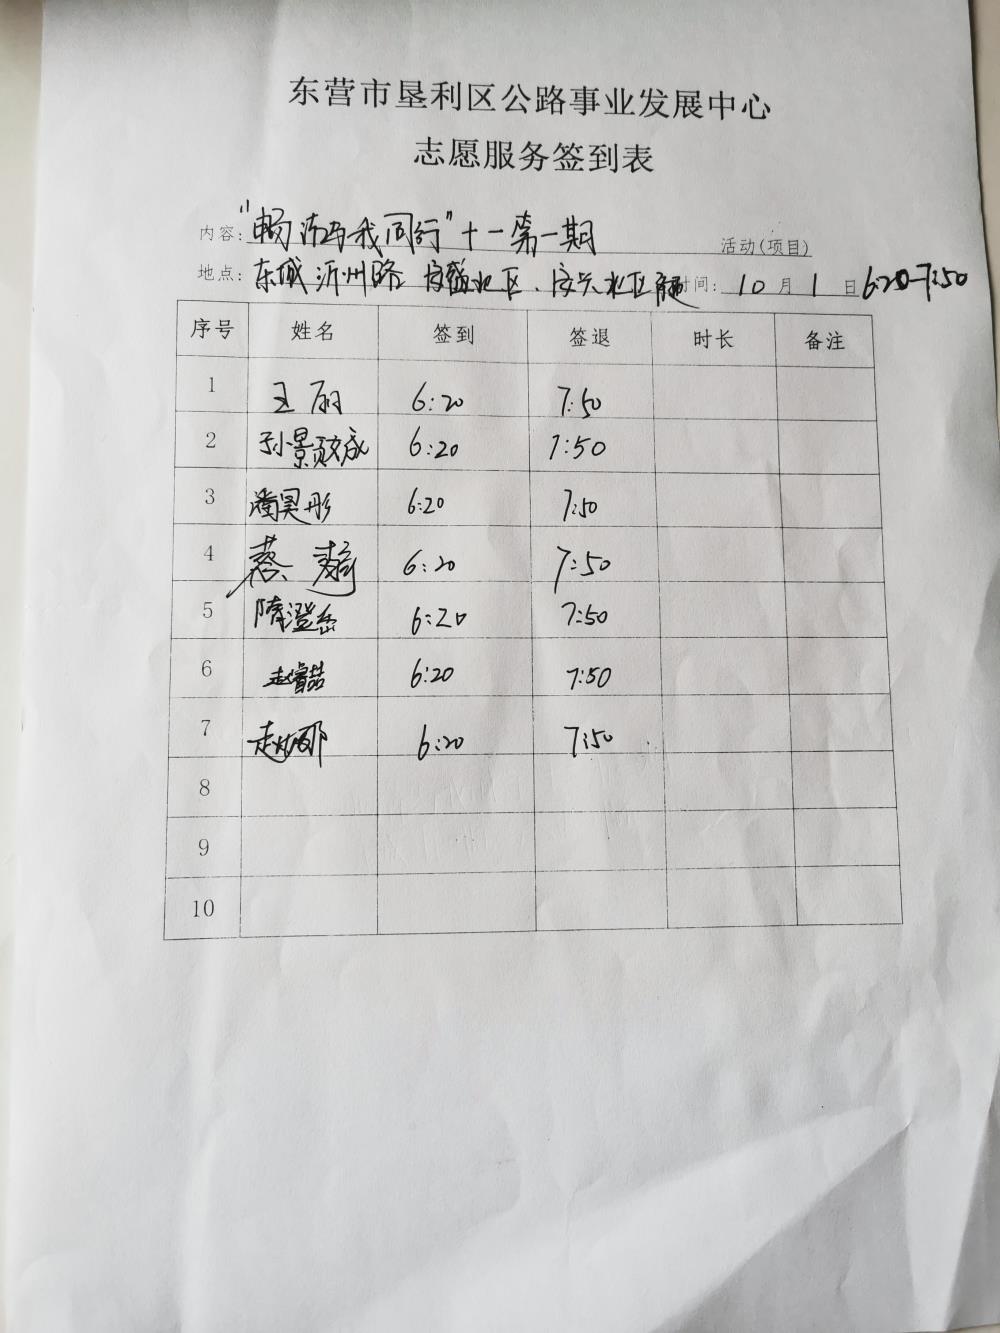 东营市垦利区公路事业发展中心
志愿服务签到表
内容："畅清与我同行"十一第一期 活动(项目)
地点：东城沂州路 北区、安兴北区 时间：10月1日 6:20-7:50
序号 姓名 签到 签退 时长 备注
1 王丽 6:20 7:50
2 孙景 6:20 7:50
3 潘昊彤 6:20 7:50
4 蔡 6:20 7:50
5 隋澄岳 6:20 7:50
6 赵睿喆 6:20 7:50
7 赵 6:20 7:50
8
9
10